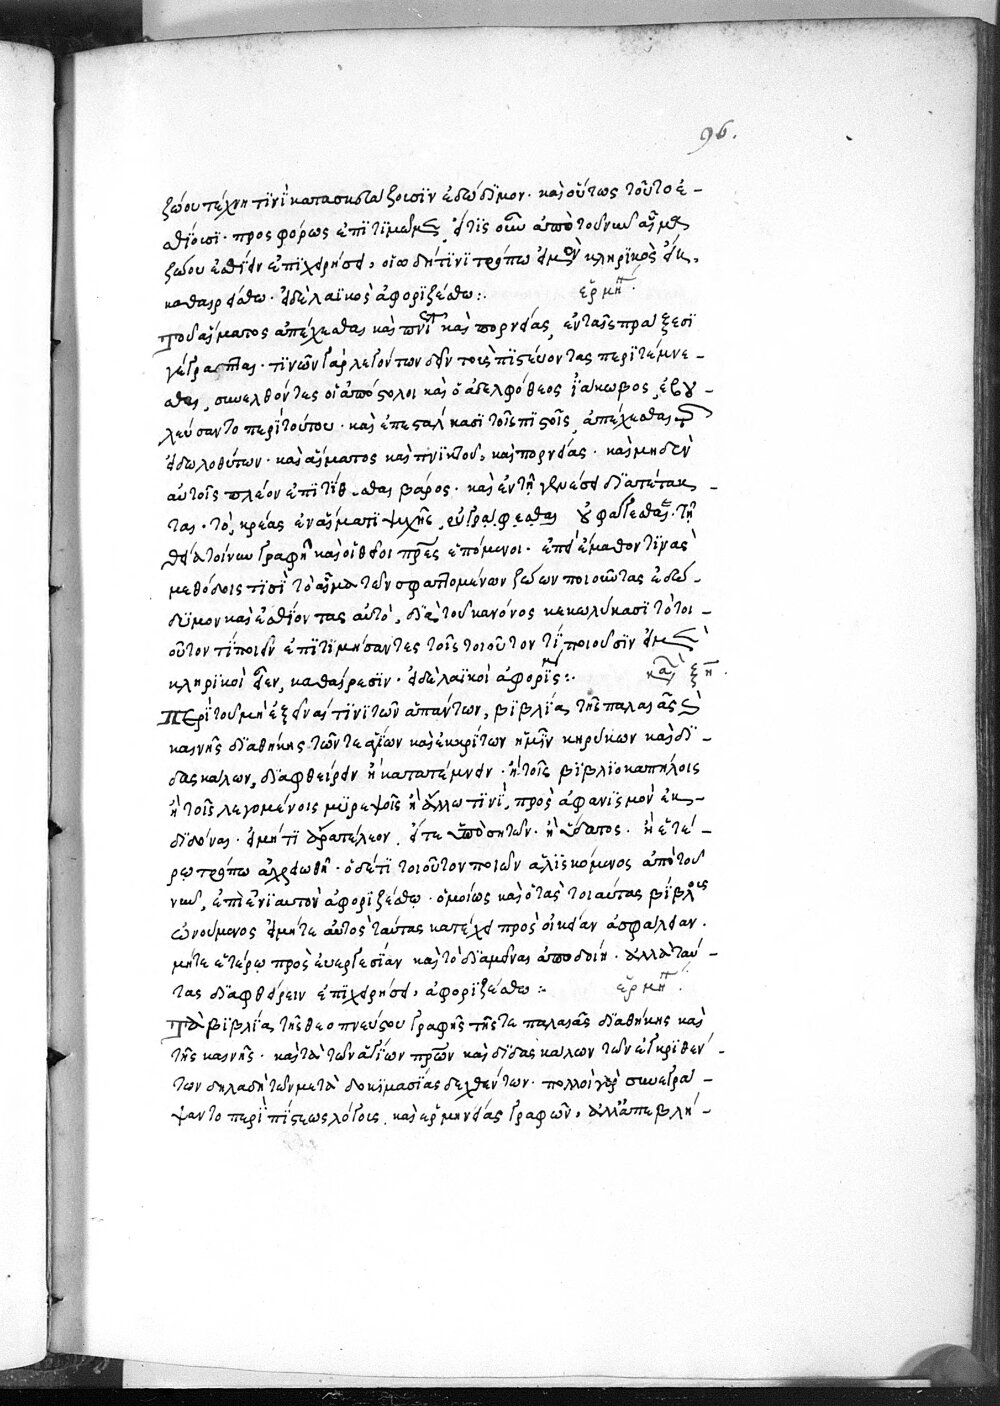 96.
ζώου τέχνη τινὶ κατασκευάζουσιν ἐδώδιμον· καὶ οὕτως τοῦτο ἐ-
σθίουσι· προσφόρως ἐπιτιμῶμεν, εἴ τις οὖν ἀπὸ τοῦ νῦν αἷμα
ζώου ἐσθίειν ἐπιχειρήσει, οἱῳδήτινι τρόπω εἰ μὲν κληρικὸς εἴη,
καθαιρείσθω· εἰ δὲ λαϊκὸς ἀφοριζέσθω:·
ἑρμη
Τοῦ αἵματος ἀπέχεσθαι καὶ πνικτοῦ καὶ πορνείας, ἐν ταῖς πράξεσι
γέγραπται· τινῶν γὰρ λεγόντων δεῖν τοὺς πιστεύοντας περιτέμνε-
σθαι, συνελθόντες οἱ ἀπόστολοι καὶ ὁ ἀδελφόθεος ἰάκωβος, ἐβου-
λεύσαντο περὶ τούτου· καὶ ἐπεστάλκασι τοῖς πιστοῖς, ἀπέχεσθαι
εἰδωλοθύτων· καὶ αἵματος καὶ πνικτοῦ, καὶ πορνείας· καὶ μηδὲν
αὐτοῖς πλέον ἐπιτίθεσθαι βάρος· καὶ ἐν τῇ γενέσει διατέτακ-
ται· τὸ, κρέας ἐν αἵματι ψυχῆς οὐ φάγεσθαι· τῇ
θεία τοίνυν γραφῇ καὶ οἱ θεῖοι πρες ἑπόμενοι· ἐπεὶ ἔμαθόν τινας
μεθόδοις τισὶ τὸ αἷμα τῶν σφαττομένων ζώων ποιοῦντας ἐδώ-
διμον καὶ ἐσθίοντας αὐτό, διὰ τοῦ κανόνος κεκωλύκασι τὸ τοι-
οῦτόν τι ποιεῖν ἐπιτιμήσαντες τοῖς τοιοῦτόν τι ποιοῦσιν εἰ μὲν
κληρικοὶ εἶεν, καθαίρεσιν· εἰ δὲ λαϊκοὶ ἀφορισμ:·
κα ξη.
Περὶ τοῦ μὴ ἐξεῖναί τινι τῶν ἁπάντων, βιβλία τῆς παλαιᾶς καὶ
καινῆς διαθήκης τῶν τε ἁγίων καὶ ἐκκρίτων ἡμῖν κηρύκων καὶ δι-
δασκάλων, διαφθείρειν ἢ κατατέμνειν· ἢ τοῖς βιβλιοκαπήλοις
ἢ τοῖς λεγομένοις μυρεψοῖς ἢ ἄλλω τινὶ, πρὸς ἀφανισμὸν ἐκ-
διδόναι· εἰ μήτι ἄρα τέλεον, εἴτε ὑπὸ σητῶν· ἢ ὕδατος· ἢ ἑτέ-
ρω τρόπω ἀχρειωθῇ· ὁ δέ τι τοιοῦτον ποιῶν ἁλισκόμενος ἀπὸ τοῦ
νῦν, ἐπὶ ἐνιαυτὸν ἀφοριζέσθω· ὁμοίως καὶ ὁ τὰς τοιαύτας βίβλους
ὠνούμενος εἰ μήτε αὐτὸς ταύτας κατέχει πρὸς οἰκείαν ὠφέλειαν·
μήτε ἑτέρω πρὸς εὐεργεσίαν καὶ τὸ διαμεῖναι ἀποδοίη· ἀλλὰ ταύ-
τας διαφθείρειν ἐπιχειρήσει, ἀφοριζέσθω:·
ἑρμη.
Τὰ βιβλία τῆς θεοπνεύστου γραφῆς τῆς τε παλαιᾶς διαθήκης καὶ
τῆς καινῆς· καὶ τὰ τῶν ἁγίων πρων καὶ διδασκάλων τῶν ἐγκριθέν-
των δηλαδὴ τῶν μετὰ δοκιμασίας δεχθέντων· πολλοὶ γὰρ συνεγρά-
ψαντο περὶ πίστεως λόγους, καὶ ἑρμηνείας γραφῶν, ἀλλ' ἀπεβλή-